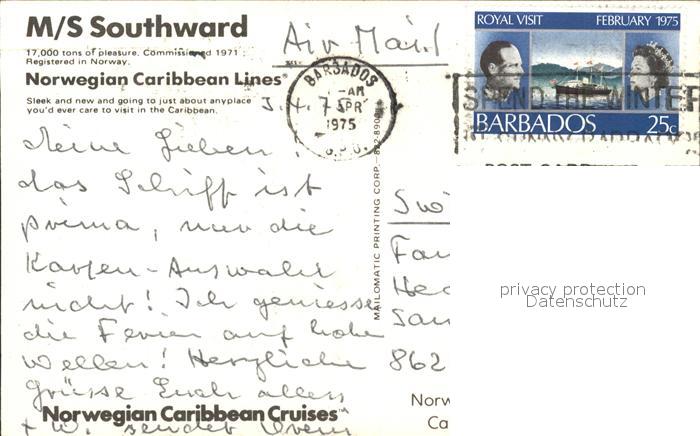 M/S Southward
17,000 tons of pleasure. Commissioned 1971
Registered in Norway.
Norwegian Caribbean Lines®
Sleek and new and going to just about anyplace
you'd ever care to visit in the Caribbean.
Air Mail
ROYAL VISIT FEBRUARY 1975
BARBADOS 25c
BARBADOS
AM
APR
1975
G.P.O.
SPEND THE WINTER
3.4.75
Meine Lieben!
das Schiff ist
prima, nur die
Karten-Auswahl
nicht! Ich geniesse
die Ferien auf hohe
Wellen! Herzliche
Grüsse Euch allen
sendet
MAILOMATIC PRINTING CORP.
Fam
San
862
Norw
Ca
Norwegian Caribbean Cruises
privacy protection
Datenschutz